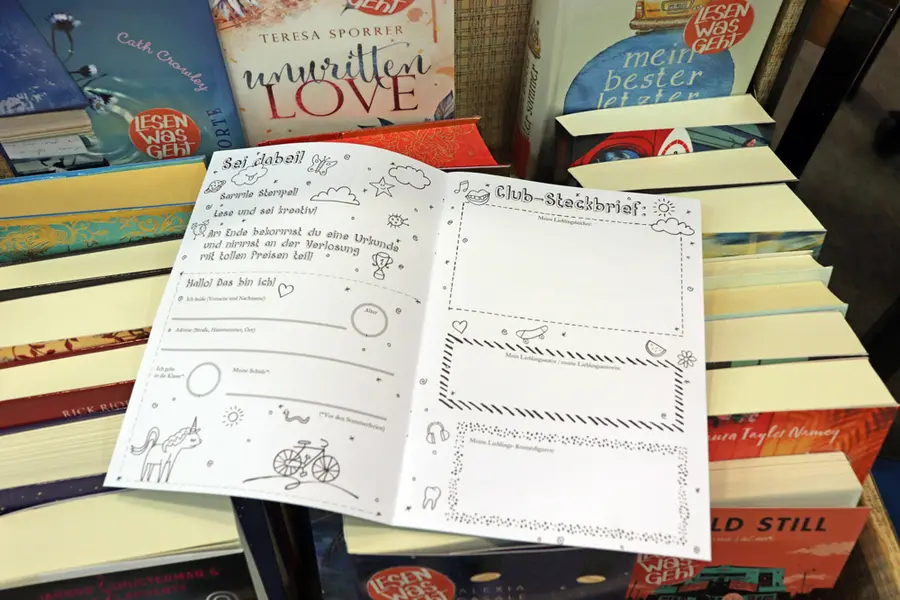 Cath Crowley
ORTE
LESEN
WAS
GEHT
GEHT
TERESA SPORRER
unwritten
LOVE
LESEN
WAS
GEHT
mein
bester
letzter
Sommer
Sei dabei!
Sammle Stempel!
Lese und sei kreativ!
Am Ende bekommst du eine Urkunde
und nimmst an der Verlosung
mit tollen Preisen teil!
Hallo! Das bin ich!
Ich heiße (Vorname und Nachname)
Alter
Adresse (Straße, Hausnummer, Ort)
Ich gehe
in die Klasse*
Meine Schule*
(*Vor den Sommerferien)
Club-Steckbrief:
Meine Lieblingsbücher:
Mein Lieblingsautor / meine Lieblingsautorin:
Meine Lieblings-Romanfiguren:
RICK RIO
Laura Taylor Namey
LD STILL
LESEN
WAS
GEHT
LESEN
WAS
GEHT